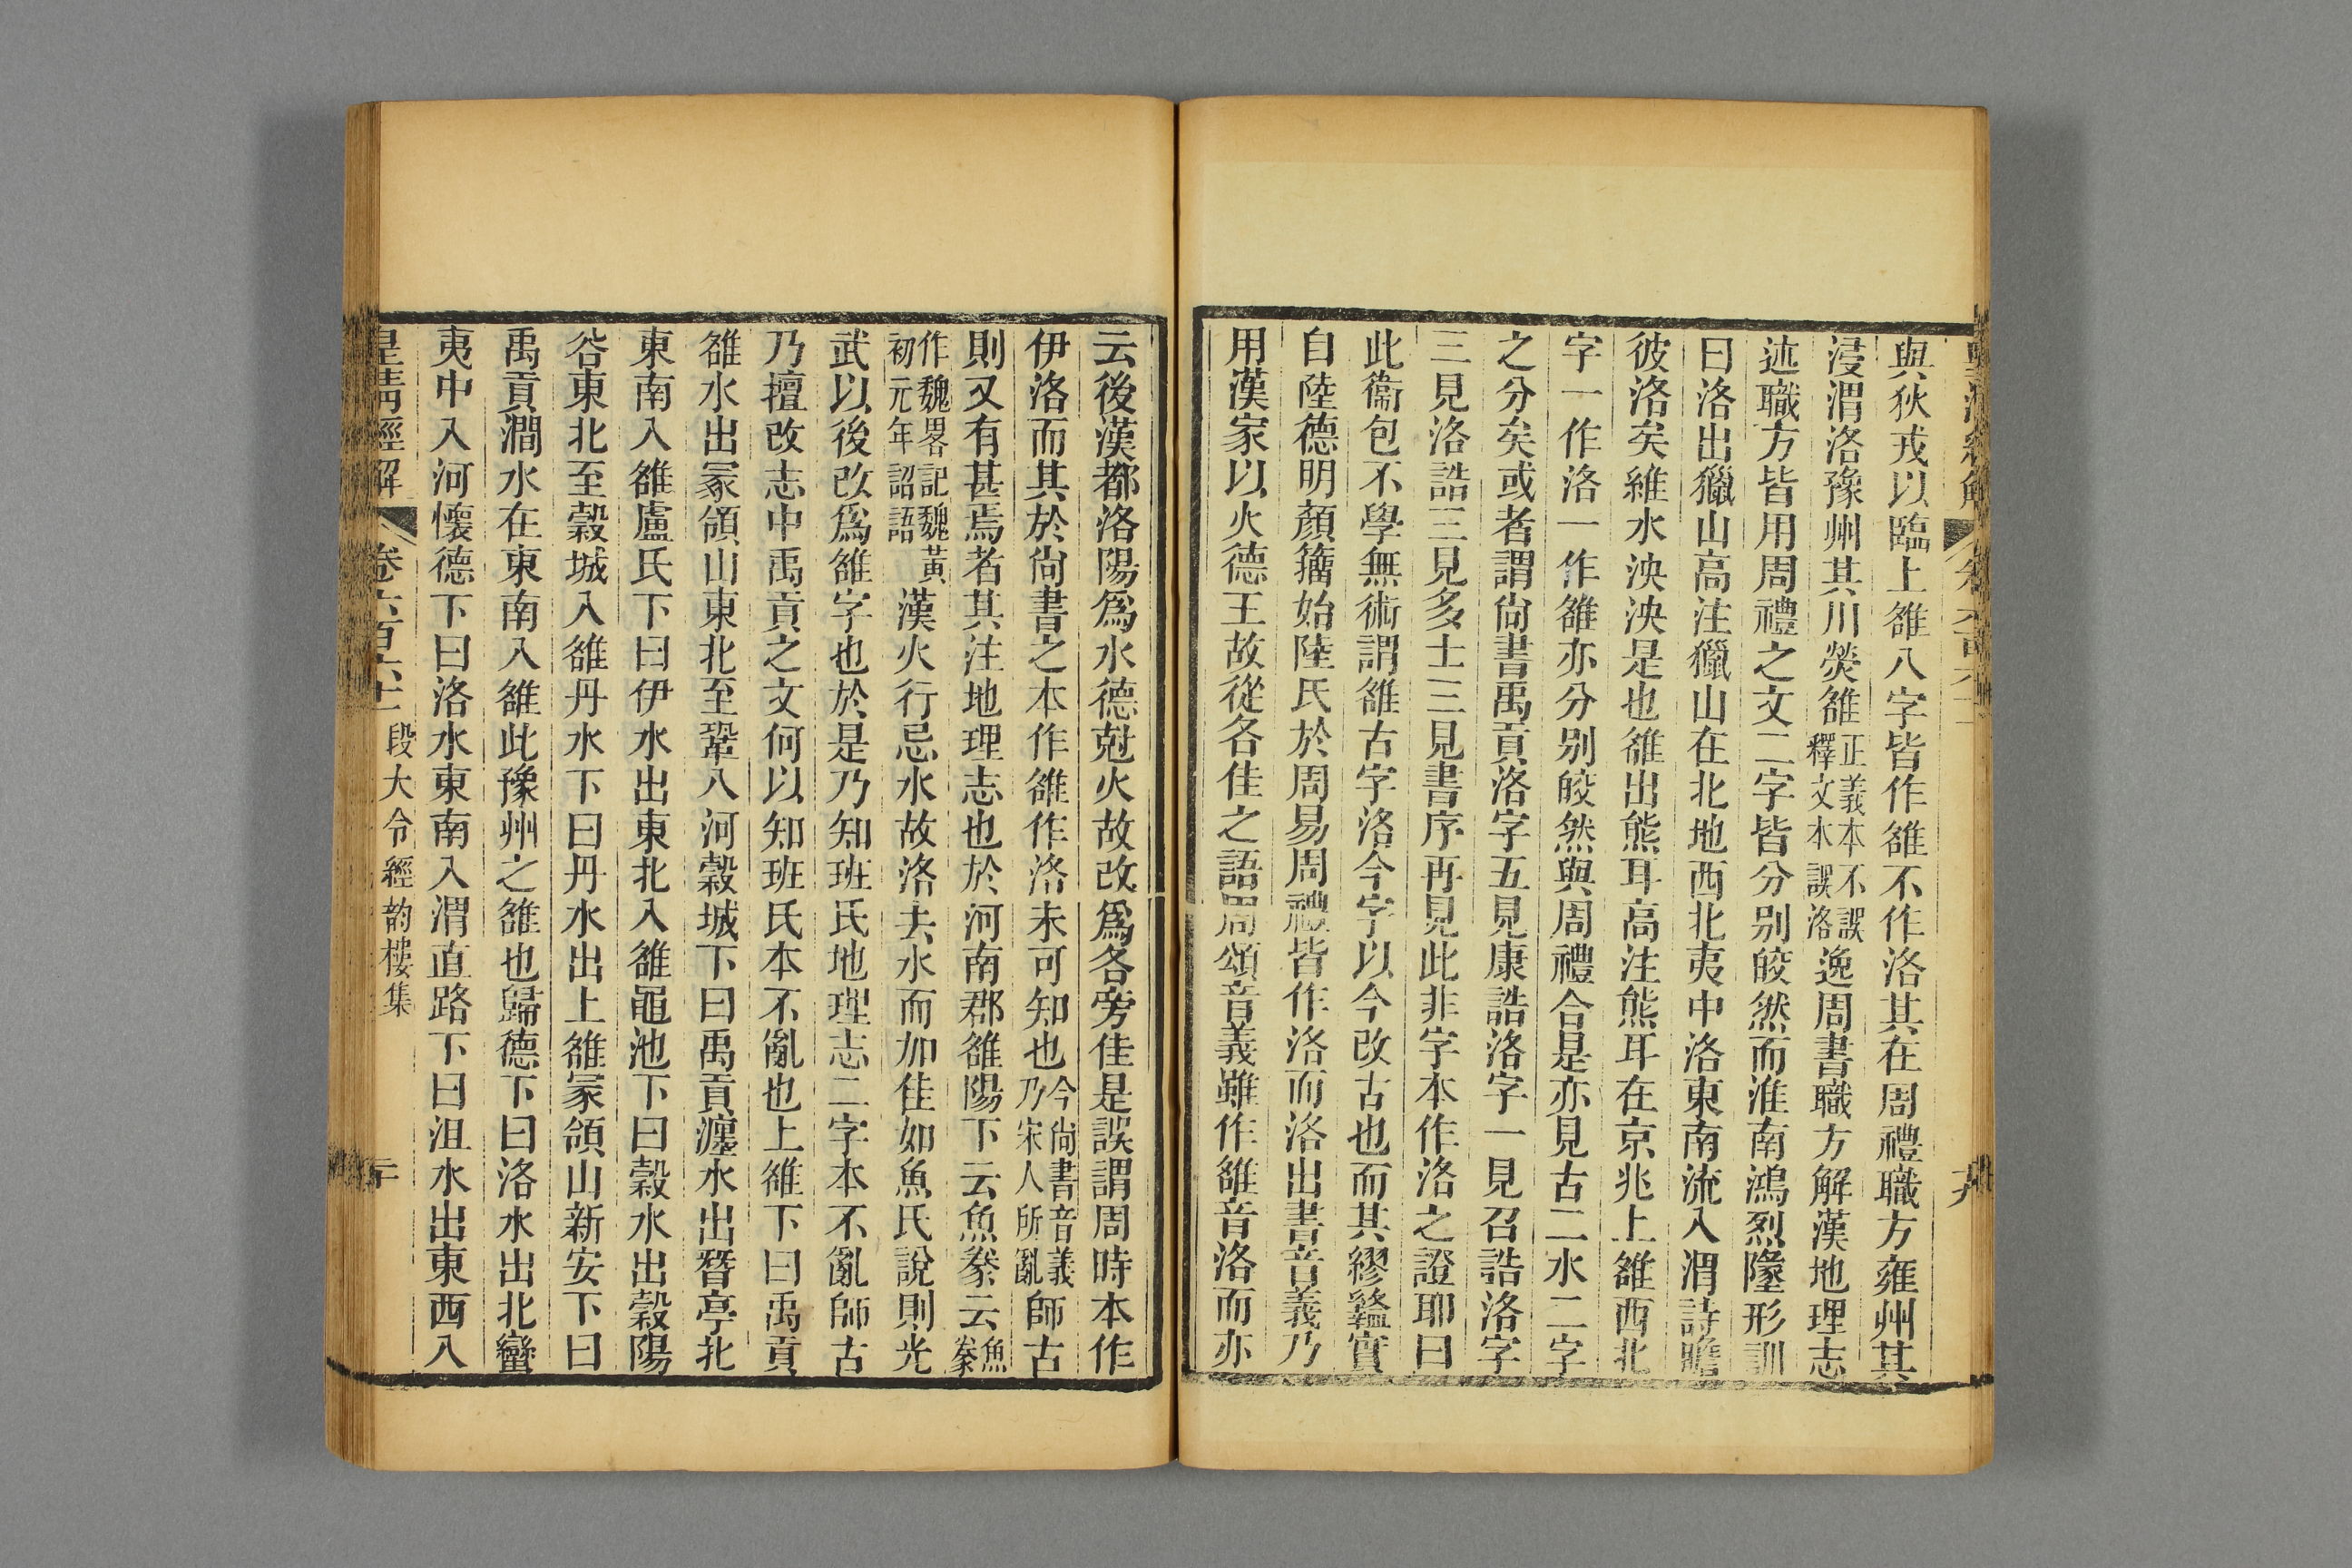 與狄戎以臨上雒八字皆作雒不作洛其在周禮職方雍州其
浸渭洛豫州其川熒雒正義本不誤釋文本誤洛逸周書職方解漢地理志
述職方皆用周禮之文二字皆分别皎然而淮南鴻烈墬形訓
曰洛出獵山高注獵山在北地西北夷中洛東南流入渭詩瞻
彼洛矣維水泱泱是也雒出熊耳高注熊耳在京兆上雒西北
字一作洛一作雒亦分别皎然與周禮合是亦見古二水二字
之分矣或者謂尙書禹貢洛字五見康誥洛字一見召誥洛字
三見洛誥三見多士三見書序再見此非字本作洛之證耶曰
此衞包不學無術謂雒古字洛今字以今改古也而其繆盭實
自陸德明顏籀始陸氏於周易周禮皆作洛而洛出書音義乃
用漢家以火德王故從各隹之語周頌音義雖作雒音洛而亦
云後漢都洛陽爲水德尅火故改爲各旁隹是誤謂周時本作
伊洛而其於尙書之本作雒作洛未可知也今尙書音義乃宋人所亂師古
則又有甚焉者其注地理志也於河南郡雒陽下云魚豢云魚豢
作魏畧記魏黃初元年詔語漢火行忌水故洛去水而加隹如魚氏說則光
武以後改爲雒字也於是乃知班氏地理志二字本不亂師古
乃擅改志中禹貢之文何以知班氏本不亂也上雒下曰禹貢
雒水出冢領山東北至鞏入河穀城下曰禹貢瀍水出朁亭北
東南入雒盧氏下曰伊水出東北入雒黽池下曰穀水出穀陽
谷東北至穀城入雒丹水下曰丹水出上雒冢領山新安下曰
禹貢澗水在東南入雒此豫州之雒也歸德下曰洛水出北蠻
夷中入河懷德下曰洛水東南入渭直路下曰沮水出東西入
皇淸經解 卷六百六十 段大令經韵樓集